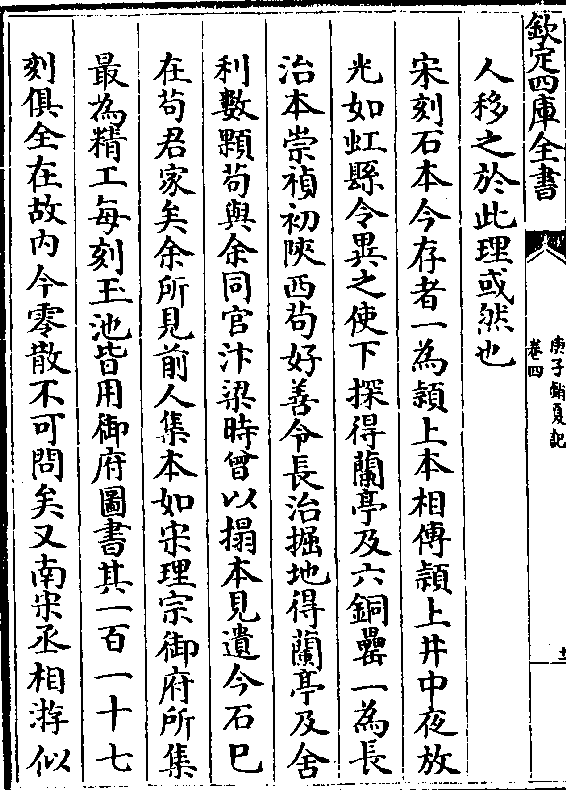 欽定四庫全書
庚子銷夏記
卷四
十
人移之於此理或然也
宋刻石本今存者一為頴上本相傳頴上井中夜放
光如虹縣令異之使下探得蘭亭及六銅罍一為長
治本崇禎初陝西苟好善令長治掘地得蘭亭及舍
利數顆苟與余同官汴梁時曾以搨本見遺今石已
在苟君家矣余所見前人集本如宋理宗御府所集
最為精工每刻玉池皆用御府圖書其一百一十七
刻俱全在故内今零散不可問矣又南宋丞相游似